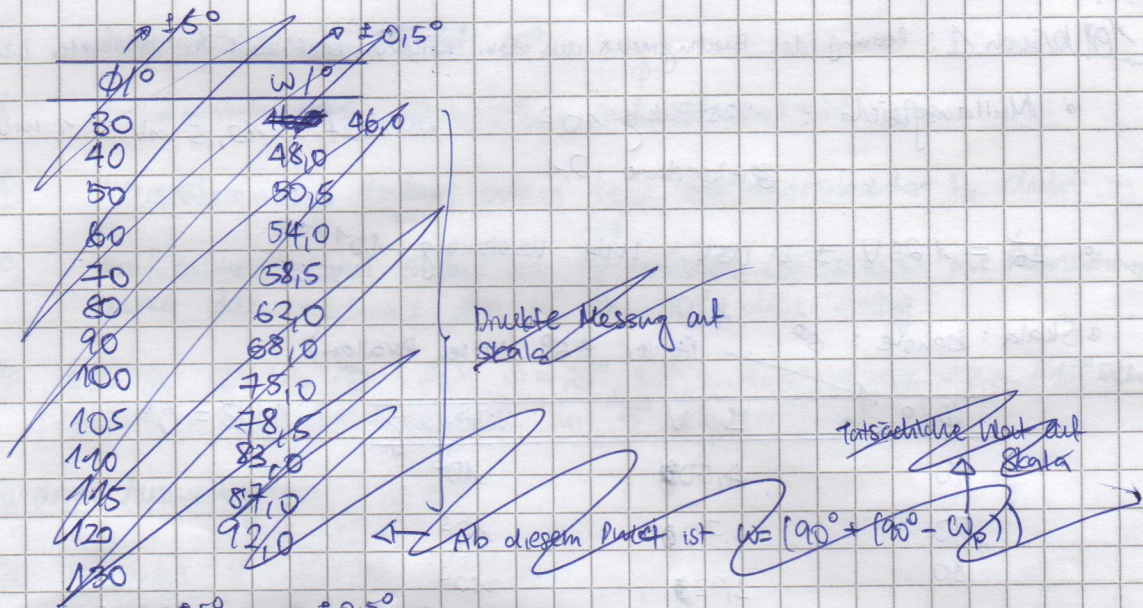 ±5° ±0,5°
ϕ/° ω/°
30 46,0
40 48,0
50 50,5
60 54,0
70 58,5
80 62,0
90 68,0
100 75,0
105 78,5
110 83,0
115 87,0
120 92,0
130
Direkte Messung auf
Skala
Tatsächliche Wert auf
Skala
Ab diesem Punkt ist ω = (90° + (90° - ωp))
±5° ±0,5°